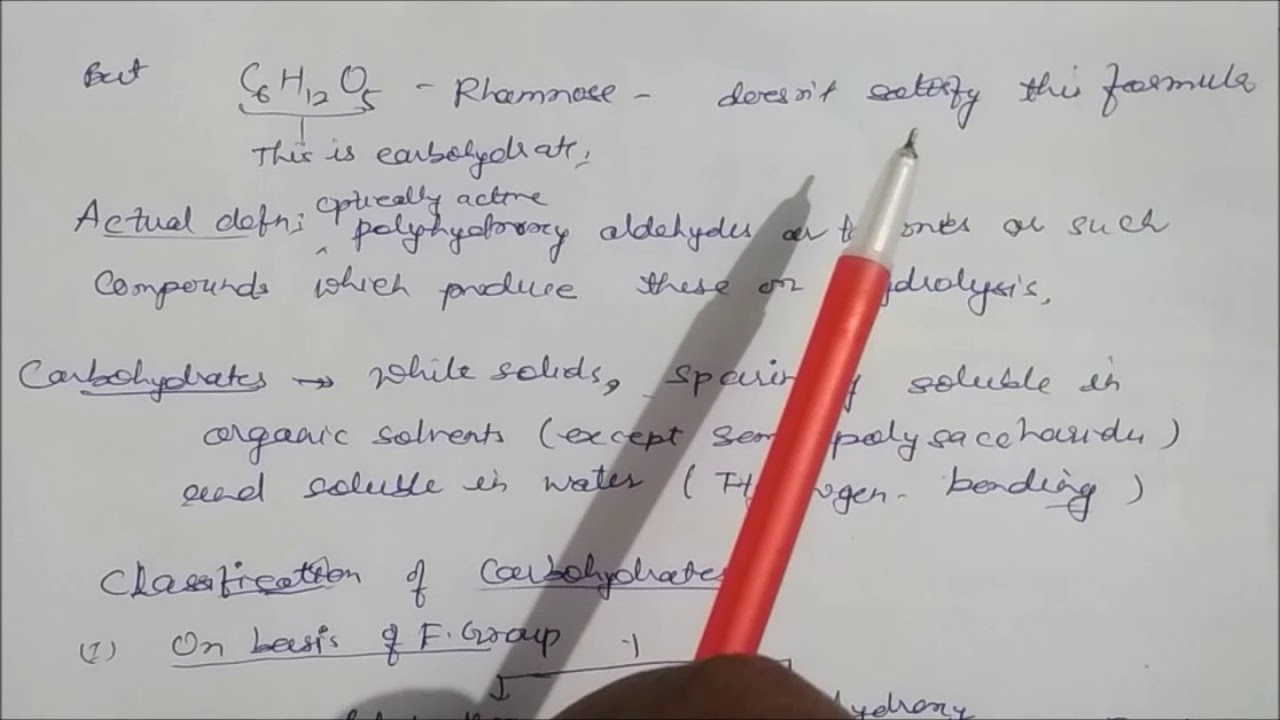 But C6H12O5 - Rhamnose - doesn't satisfy this formula
This is carbohydrate,
optically active
Actual defn: polyhydroxy aldehydes or or such
compounds which produce these on
Carbohydrates → white solids, soluble in
organic solvents (except polysaccharides)
and soluble in water ( bonding )
Classification of Carbohydrates
(I) On basis of F. Group